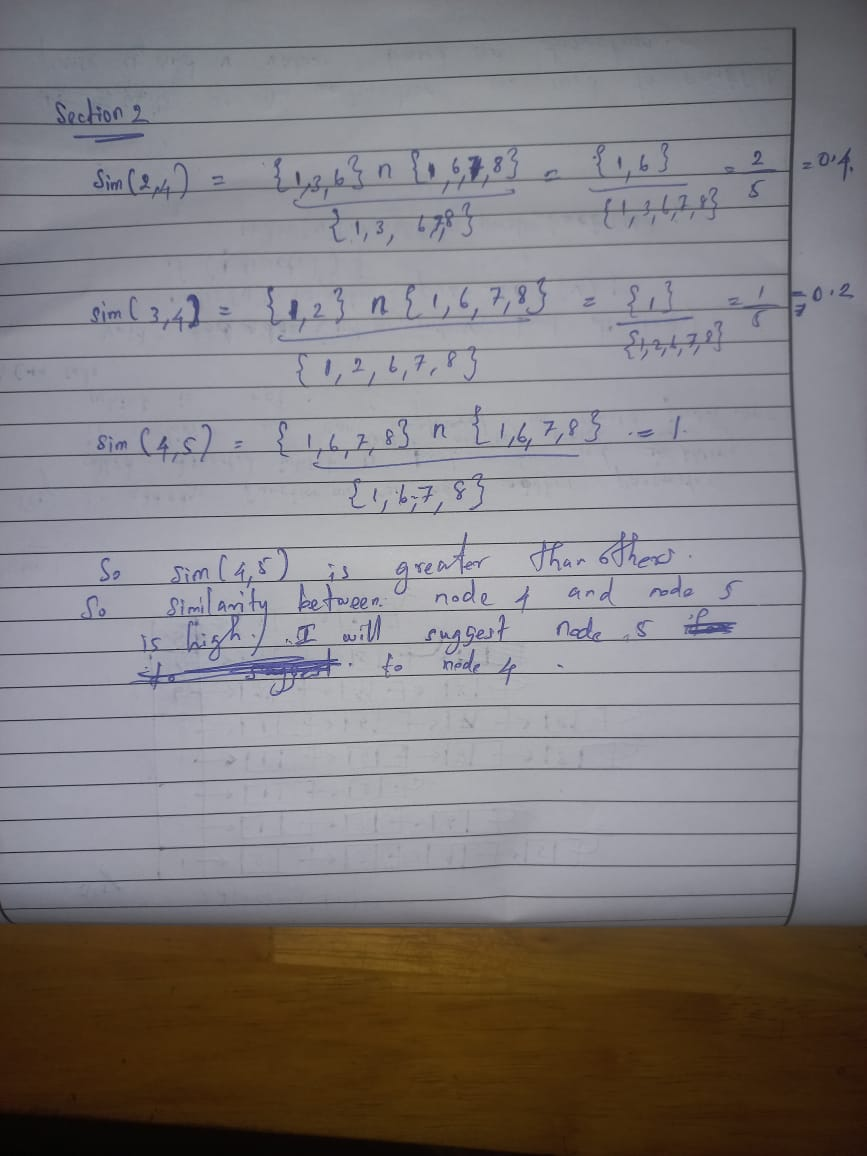 Section 2
Sim(2,4) = {1,3,6} n {1,6,7,8} = {1,6} = 2 = 0.4.
{1,3, 6,7,8} {1,3,6,7,8} 5
sim(3,4) = {1,2} n {1,6,7,8} = {1} = 1 = 0.2
{1,2,6,7,8} {1,2,6,7,8} 5
Sim(4,5) = {1,6,7,8} n {1,6,7,8} = 1.
{1,6,7,8}
So Sim(4,5) is greater than others.
So Similarity between node 4 and node 5
is high. I will suggest node 5
to node 4.